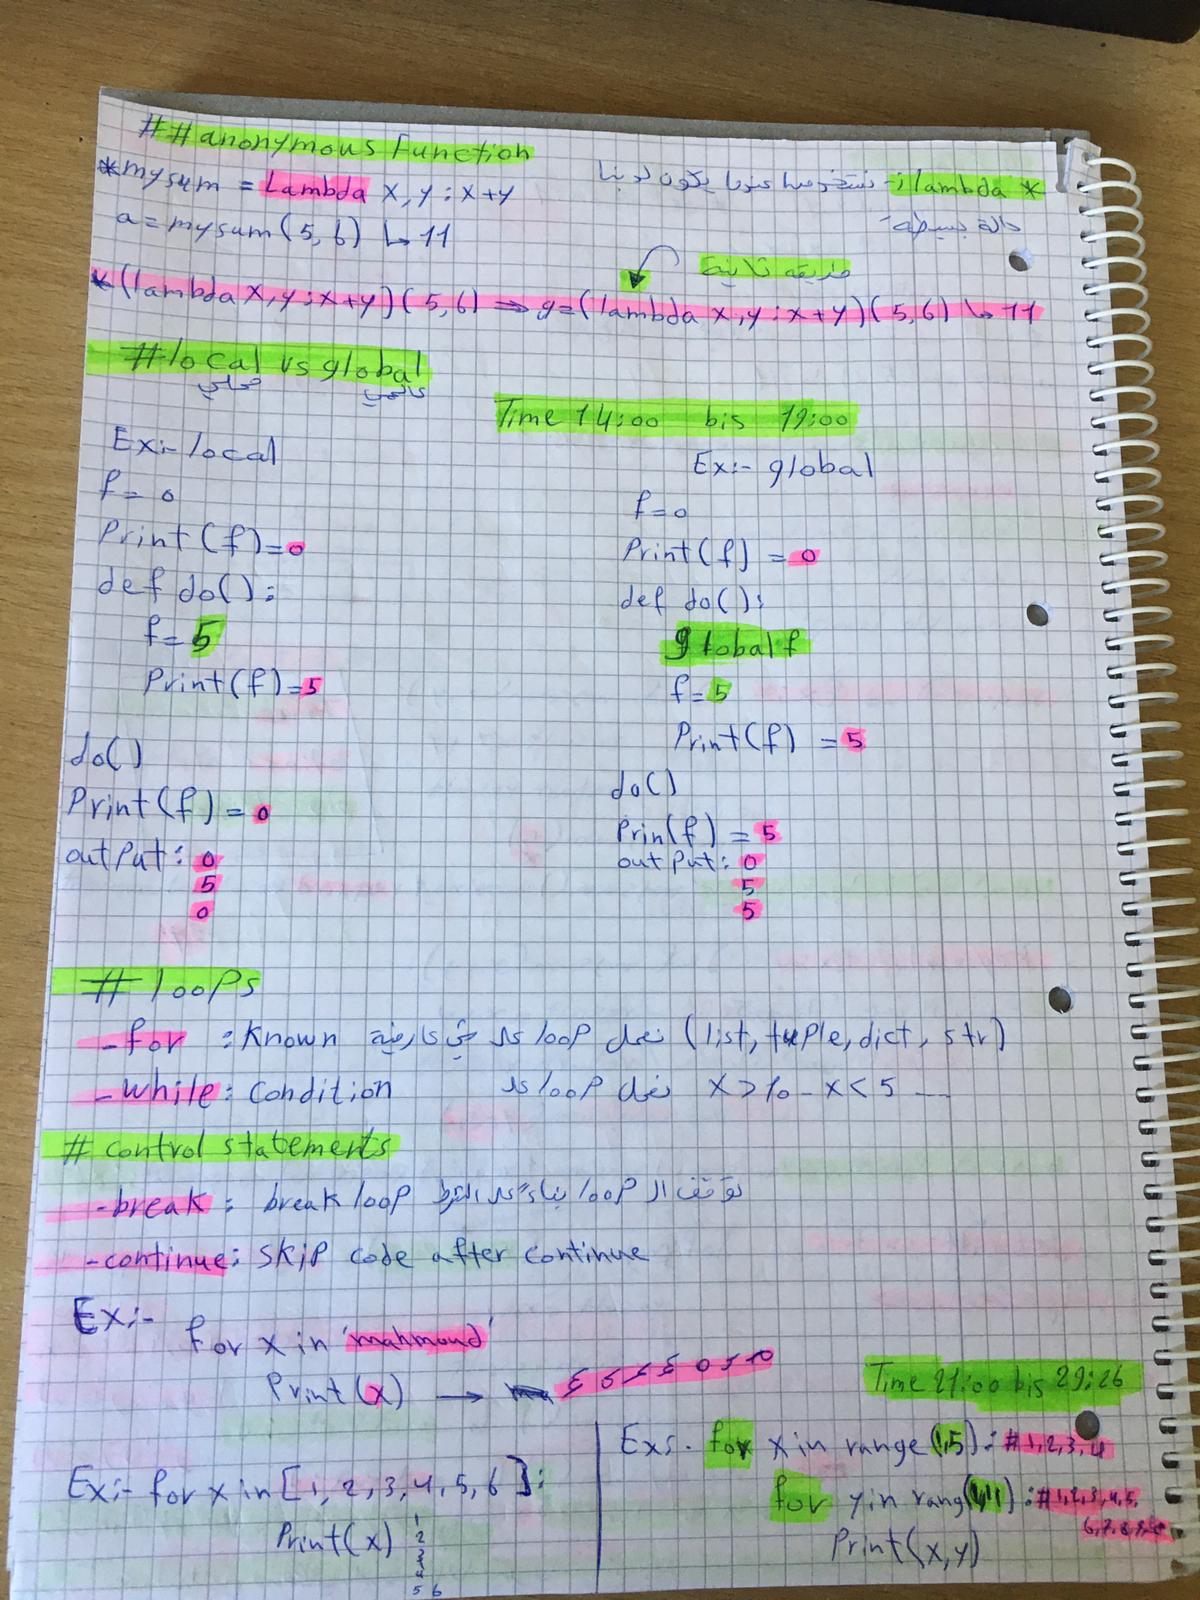 ## anonymous function
*mysum = Lambda x,y : x+y
* lambda :- نستخدمها عندما يكون لدينا
دالة بسيطة
a = mysum(5,6) ↳ 11
طريقة ثانية
*(lambda x,y:x+y)(5,6) ⇒ g=(lambda x,y:x+y)(5,6) ↳ 11
# local vs global
محلي عالمي
Time 14:00 bis 19:00
Ex:- local
f = 0
Print(f)=0
def do():
f=5
Print(f)=5
do()
Print(f)=0
output: 0
5
0
Ex:- global
f=0
Print(f) =0
def do():
global f
f=5
Print(f) =5
do()
Prin(f) =5
output: 0
5
5
# loops
-for : Known نعمل loop على (list, tuple, dict, str)
-while: Condition نعمل loop على x>10 - x<5 ---
# control statements
-break: break loop توقف الـ loop بناء على الشرط
-continue: skip code after continue
Ex:-
for x in 'mahmoud'
Print(x) →
Time 21:00 bis 29:26
Ex:- for x in [1, 2, 3, 4, 5, 6]:
Print(x) 1
2
3
4
5 6
Ex:- for x in range(1,5): #1,2,3,4
for y in rang(1,11): #1,2,3,4,5,
6,7,8,9,10
Print(x,y)